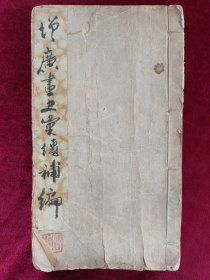 增廣畫史彙傳補編